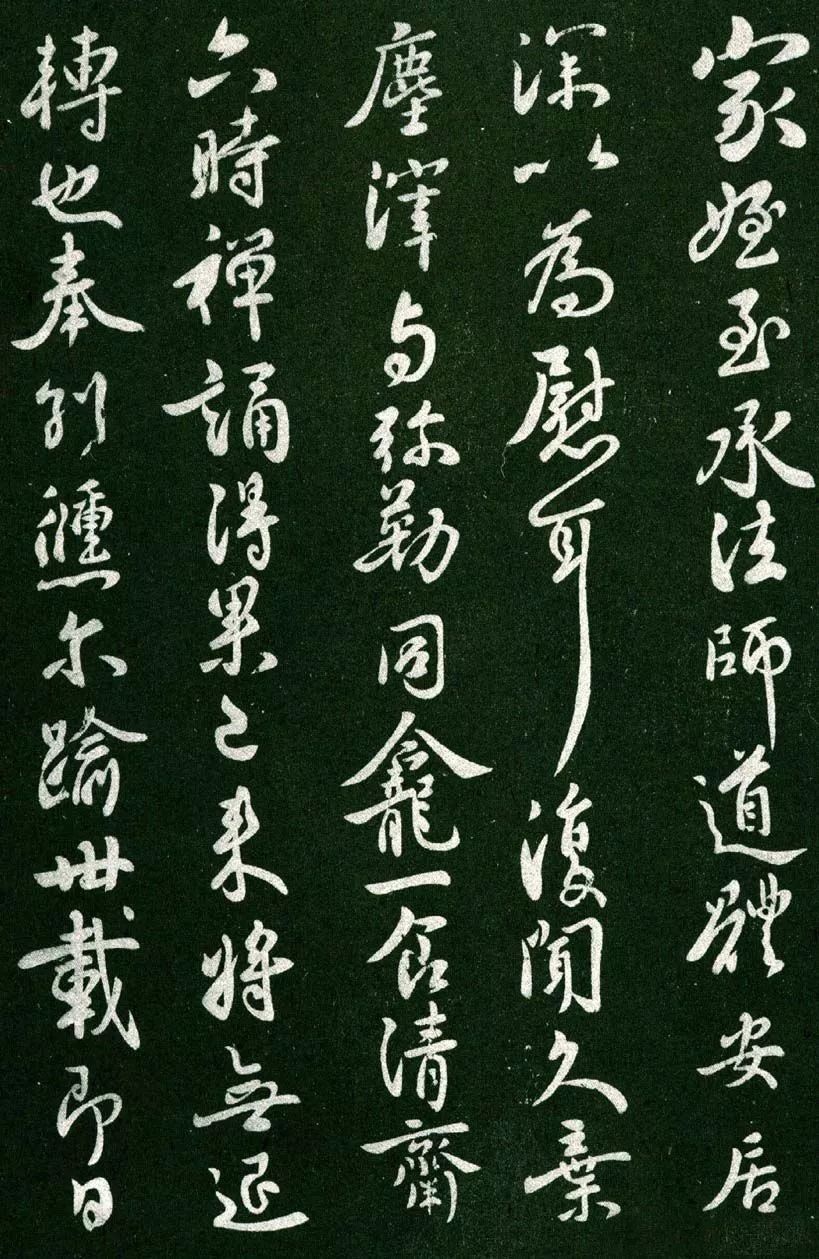 家姪至承法師道體安居
深以為慰耳復聞久棄
塵滓与弥勒同龕一食清齋
六時禅誦得果已来將無退
轉也奉別傾尔踰卅載即日